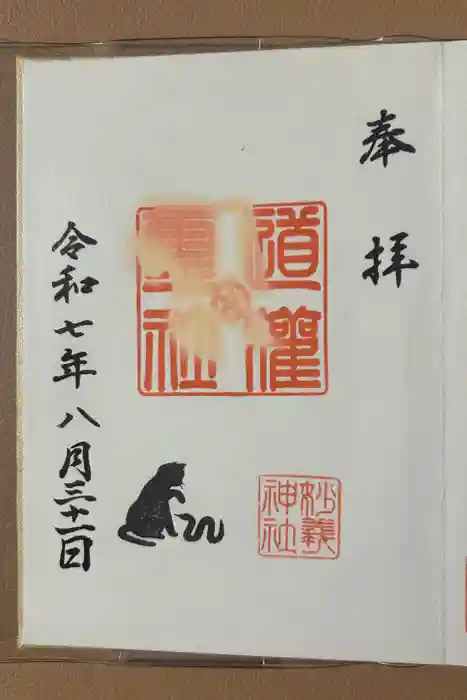 奉拝
道灌霊社
妙義神社
令和七年八月三十一日